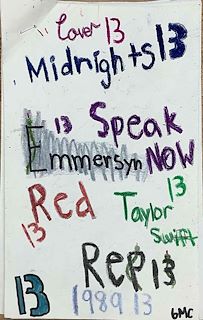 Lover 13
Midnights 13
13 Speak
Emmersyn NOW
Red 13
13
Taylor
Swift
Rep 13
13
1989 13
6MC